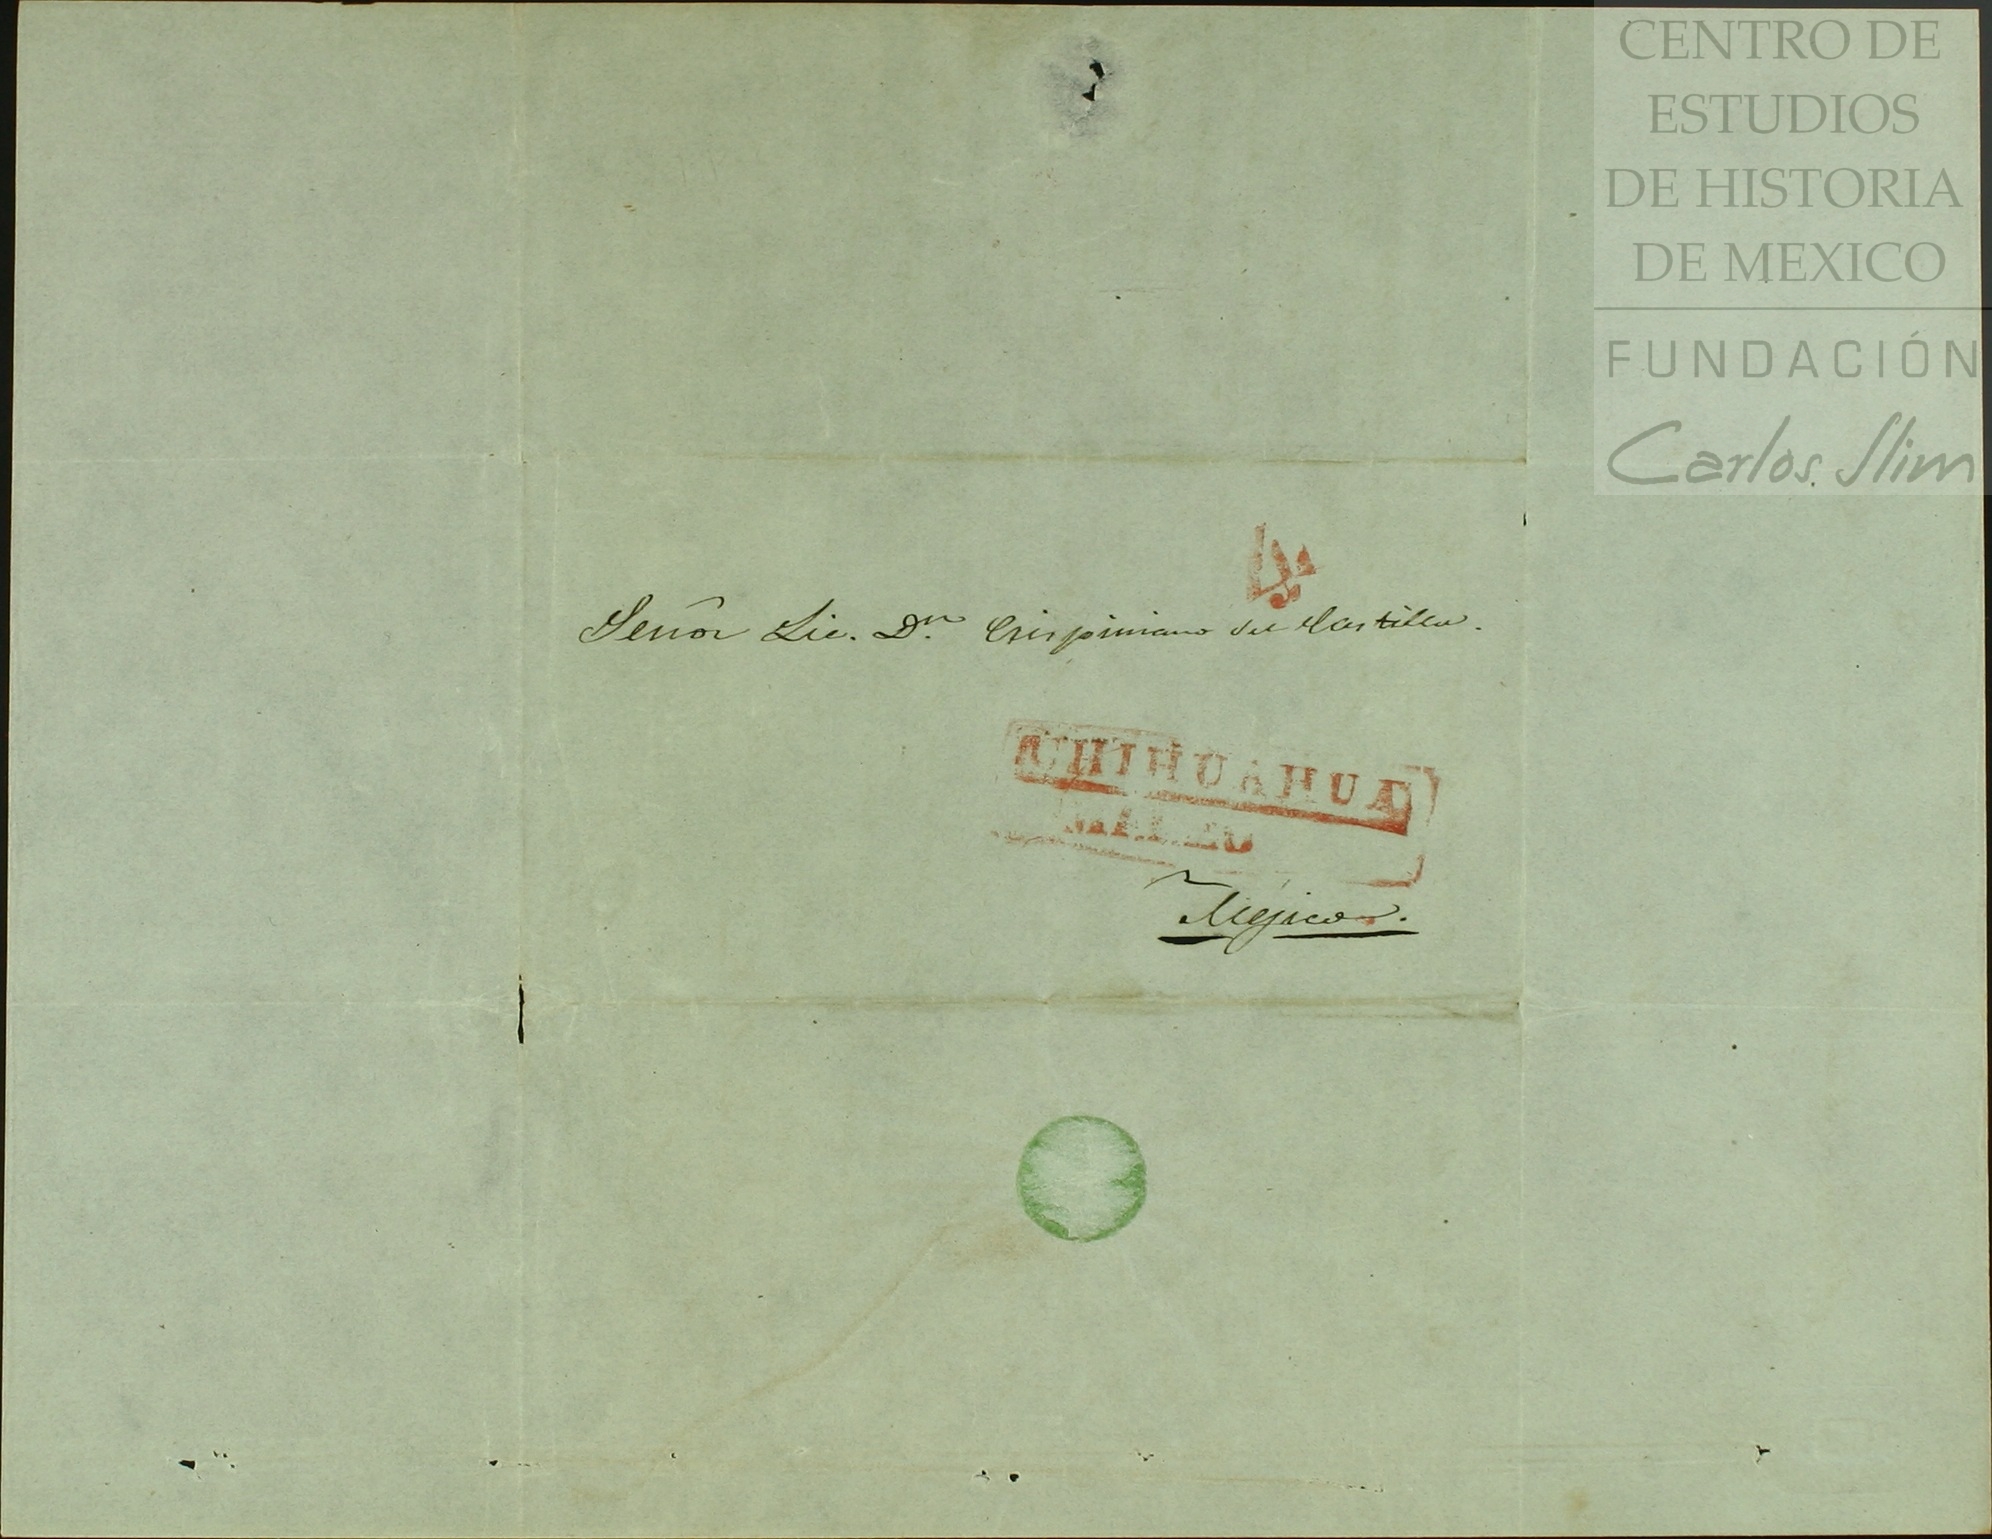 CENTRO DE
ESTUDIOS
DE HISTORIA
DE MEXICO
FUNDACIÓN
Carlos Slim
Señor Lic. Dn. Crispiniano del Castillo.
CHIHUAHUA
Méjico.